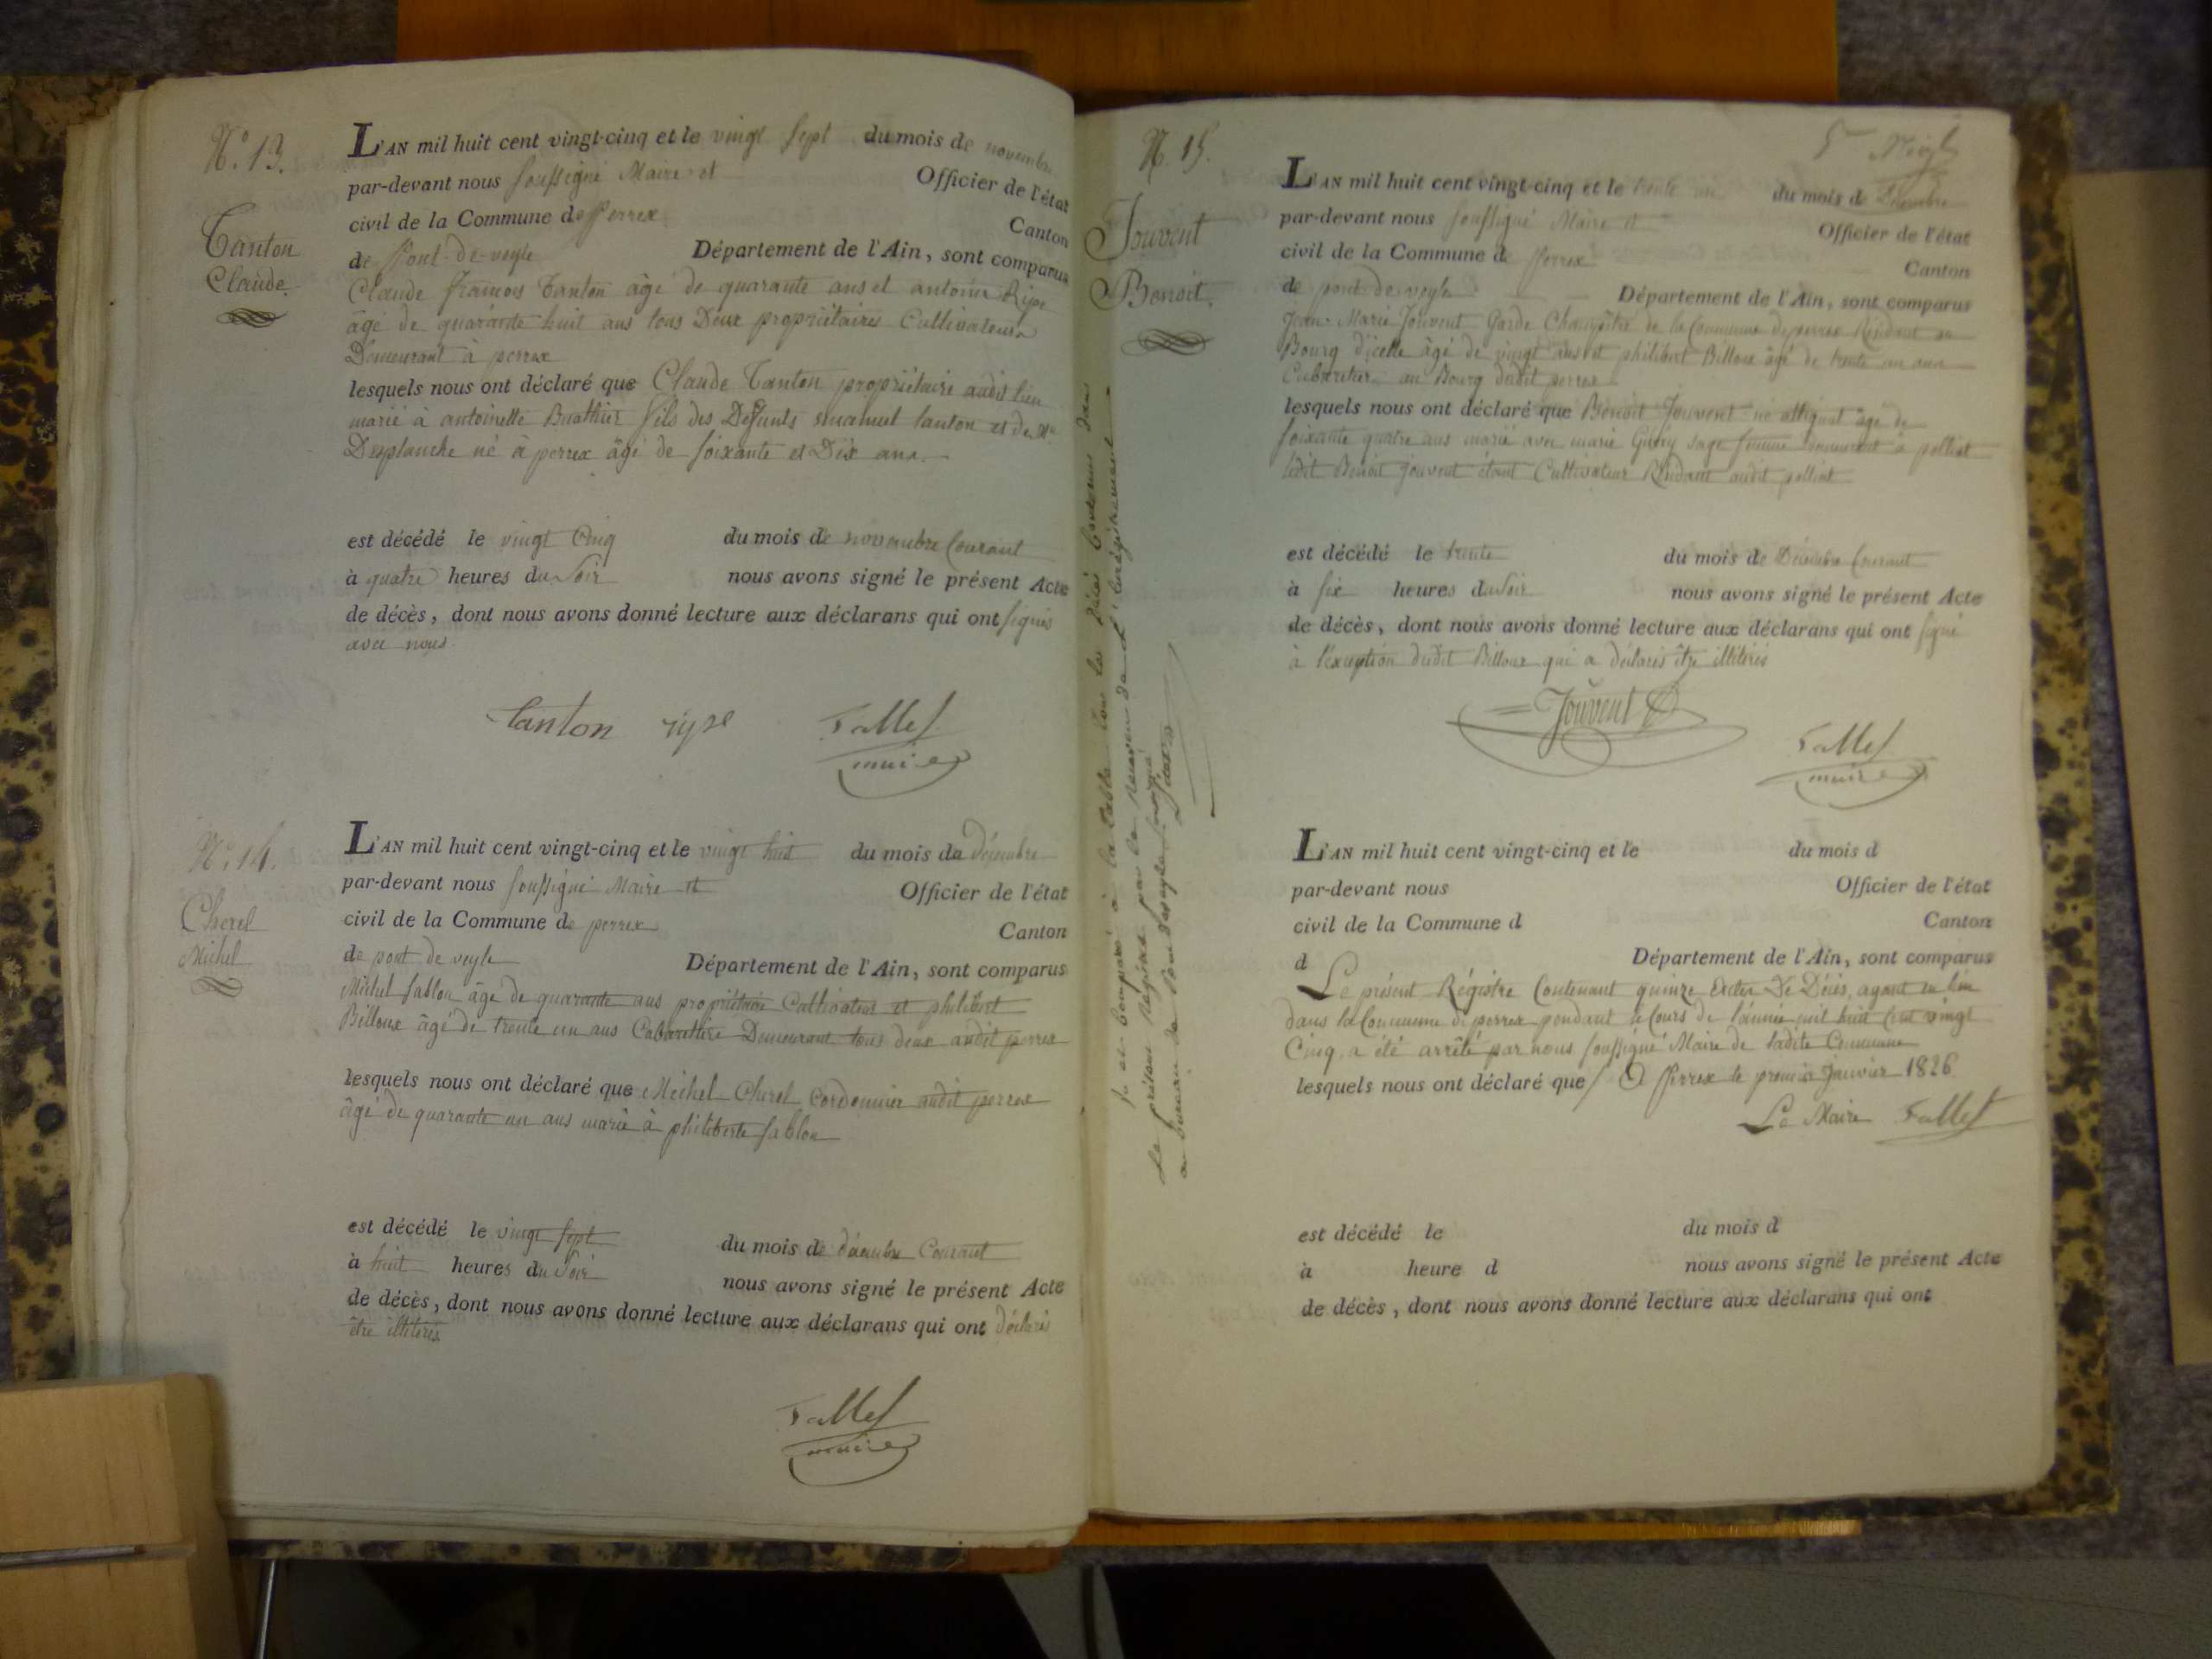 N.º 13.
Tanton
Claude.
L'AN mil huit cent vingt-cinq et le vingt sept du mois de novembre
par-devant nous soussigné Maire et Officier de l'état
civil de la Commune de Perrex Canton
de Pont-de-veyle Département de l'Ain, sont comparus
Claude françois Tanton âgé de quarante ans et antoine
âgé de quarante huit ans tous Deux propriétaires Cultivateurs
Demeurant à perrex
lesquels nous ont déclaré que Claude Tanton propriétaire audit lieu
marié à antoinette fils des Defunts tanton et de
Desplanche né à perrex âgé de soixante et Dix ans.
est décédé le vingt Cinq du mois de novembre Courant
à quatre heures du Soir nous avons signé le présent Acte
de décès, dont nous avons donné lecture aux déclarans qui ont signés
avec nous.
Tanton Fallet
maire
N.º 14.
Cherel
Michel
L'AN mil huit cent vingt-cinq et le vingt huit du mois de décembre
par-devant nous soussigné Maire et Officier de l'état
civil de la Commune de perrex Canton
de pont de veyle Département de l'Ain, sont comparus
Michel Sablon âgé de quarante ans propriétaire Cultivateur et philibert
Billoux âgé de trente un ans Cabaretière Demeurant tous deux audit perrex
lesquels nous ont déclaré que Michel Cherel Cordonnier audit perrex
âgé de quarante un ans marié à philiberte Sablon
est décédé le vingt sept du mois de décembre Courant
à huit heures du Soir nous avons signé le présent Acte
de décès, dont nous avons donné lecture aux déclarans qui ont déclarés
être illitérés
Fallet
maire
N. 15.
Jouvent
Benoit.
L'AN mil huit cent vingt-cinq et le trente un du mois de Décembre
par-devant nous soussigné Maire et Officier de l'état
civil de la Commune de Perrex Canton
de pont de veyle Département de l'Ain, sont comparus
Jean-Marie Jouvent Garde Champêtre de la Commune de perrex Résidant au
Bourg d'icelle âgé de vingt ans et philibert Billoux âgé de trente un ans
Cabaretier au Bourg dudit perrex
lesquels nous ont déclaré que Benoit Jouvent né attignat âgé de
soixante quatre ans marié avec marie sage femme demeurant à polliat
ledit Benoit Jouvent étant Cultivateur Résidant audit polliat
est décédé le trente du mois de Décembre Courant
à six heures du Soir nous avons signé le présent Acte
de décès, dont nous avons donné lecture aux déclarans qui ont signé
à l'exception dudit Billoux qui a déclaré être illitérés
Jouvent
Fallet
maire
L'AN mil huit cent vingt-cinq et le du mois d
par-devant nous Officier de l'état
civil de la Commune d Canton
d Département de l'Ain, sont comparus
Le présent Régistre Contenant quinze Actes De Décès, ayant eu lieu
dans la Commune de perrex pendant le Cours de l'année mil huit Cent vingt
Cinq, a été arrêté par nous soussigné Maire de ladite Commune
lesquels nous ont déclaré que / à Perrex le premier Janvier 1826
Le Maire Fallet
est décédé le du mois d
à heure d nous avons signé le présent Acte
de décès, dont nous avons donné lecture aux déclarans qui ont